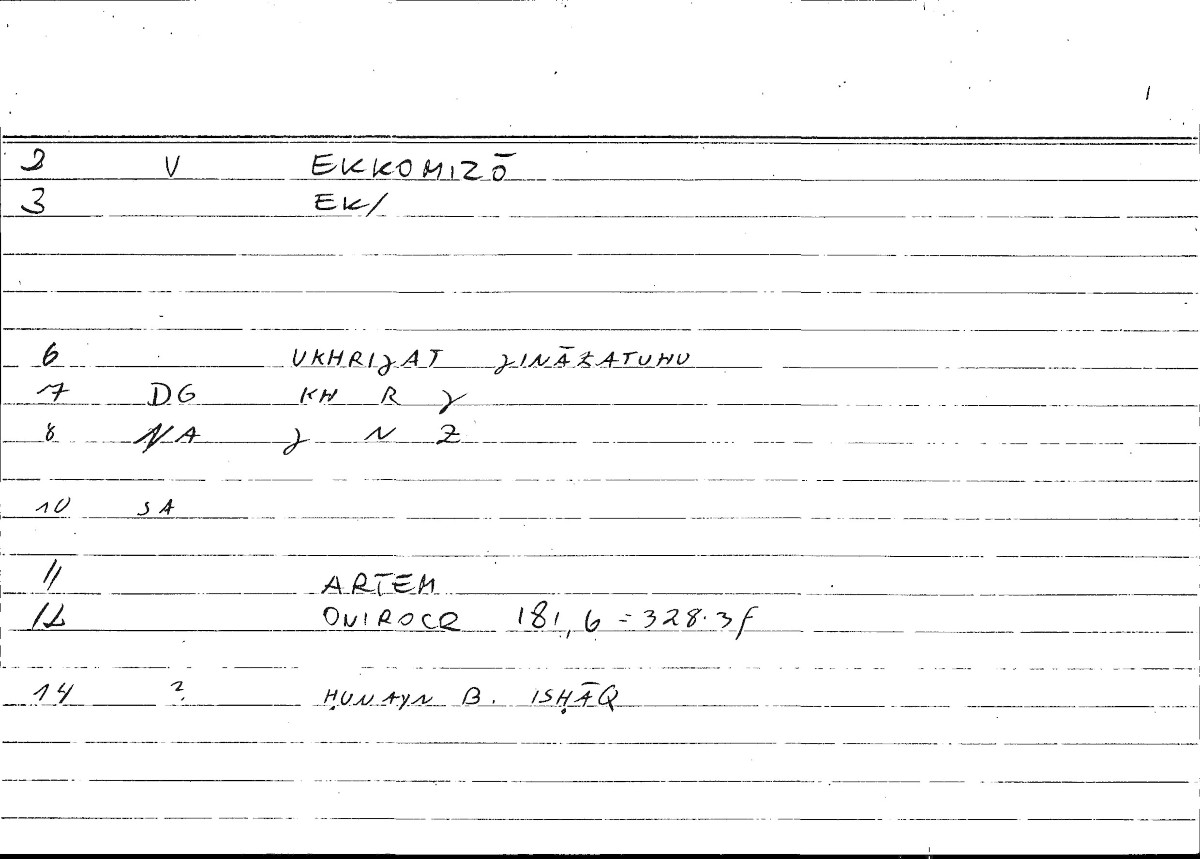 1
2 V EKKOMIZŌ
3 EK/
6 UKHRIJAT JINĀZATUHU
7 DG KH R J
8 NA J N Z
10 SA
11 ARTEM
12 ONIROCR 181,6 = 328.3f
14 ? ḤUNAYN B. ISḤĀQ